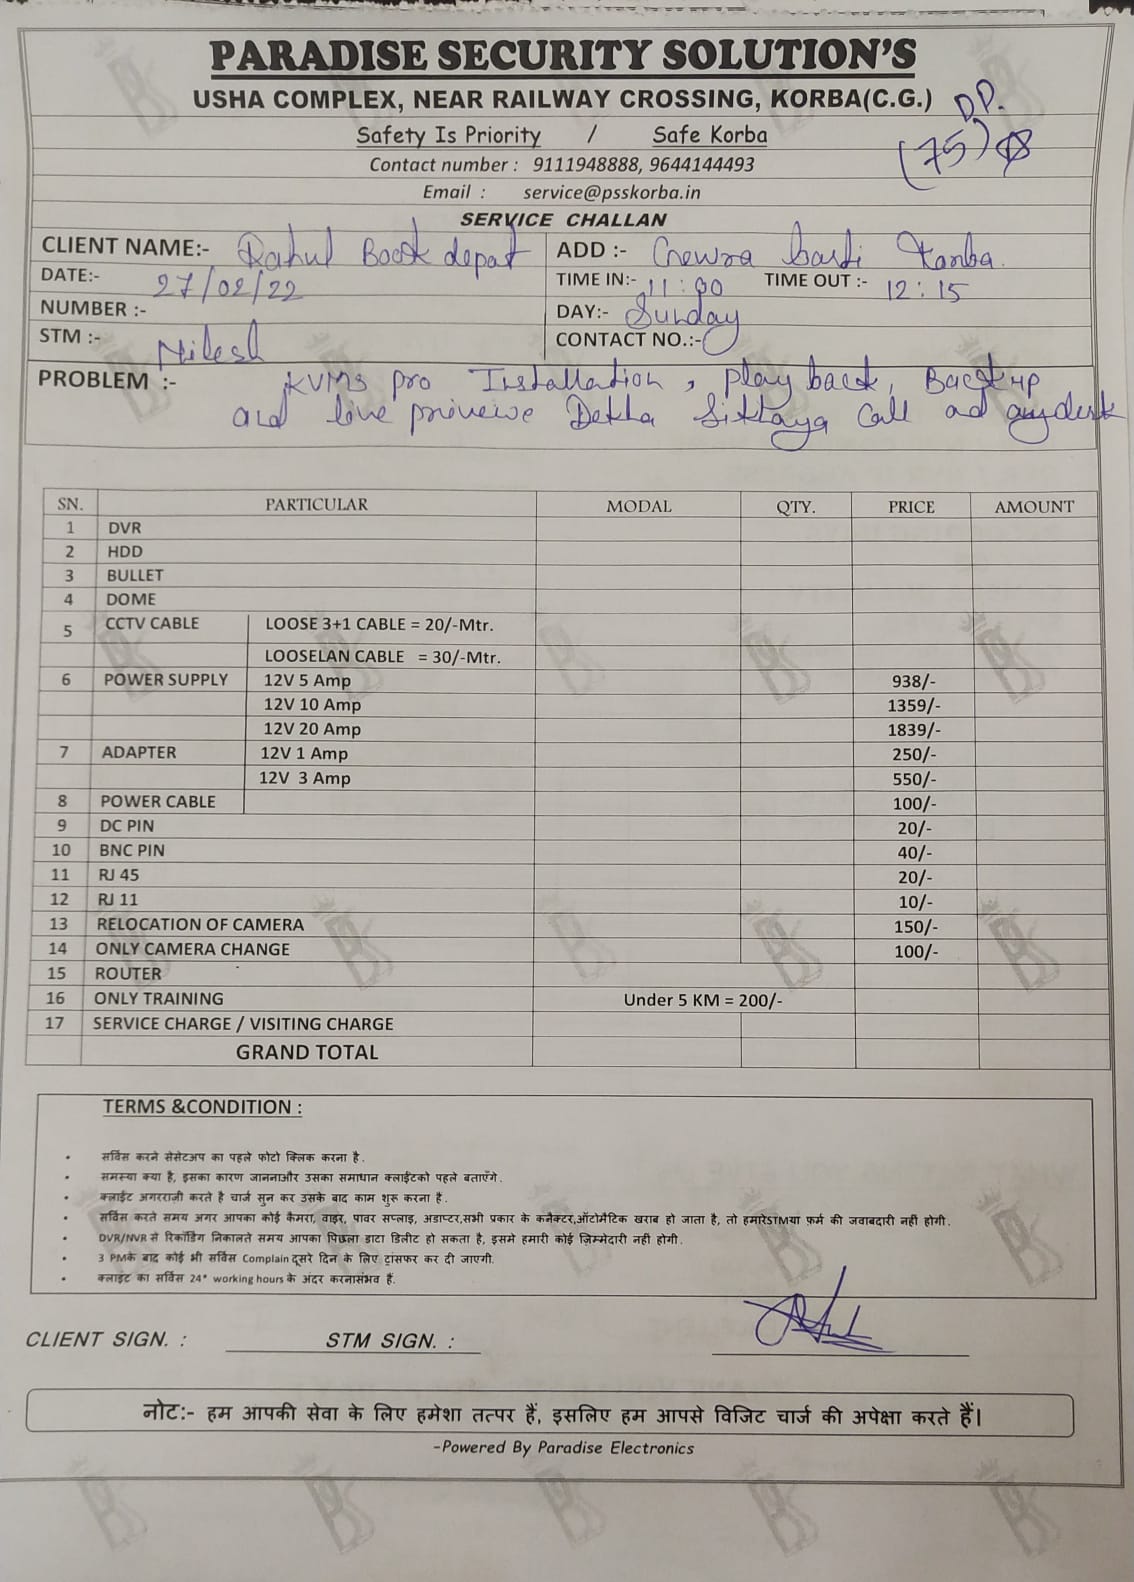 PARADISE SECURITY SOLUTION'S
USHA COMPLEX, NEAR RAILWAY CROSSING, KORBA(C.G.)
D.D.
(75)
Safety Is Priority / Safe Korba
Contact number : 9111948888, 9644144493
Email : service@psskorba.in
SERVICE CHALLAN
CLIENT NAME:- Rahul Book depot ADD :- Gewra basti Korba.
DATE:- 27/02/22 TIME IN:- 11:00 TIME OUT :- 12:15
NUMBER :- DAY:- Sunday
STM :- Nilesh CONTACT NO.:-
PROBLEM :- KVMS pro Installation, play back, Backup
and live Dekha Sikhaya Call ad anydesk
SN. PARTICULAR MODAL QTY. PRICE AMOUNT
1 DVR
2 HDD
3 BULLET
4 DOME
5 CCTV CABLE LOOSE 3+1 CABLE = 20/-Mtr.
LOOSELAN CABLE = 30/-Mtr.
6 POWER SUPPLY 12V 5 Amp 938/-
12V 10 Amp 1359/-
12V 20 Amp 1839/-
7 ADAPTER 12V 1 Amp 250/-
12V 3 Amp 550/-
8 POWER CABLE 100/-
9 DC PIN 20/-
10 BNC PIN 40/-
11 RJ 45 20/-
12 RJ 11 10/-
13 RELOCATION OF CAMERA 150/-
14 ONLY CAMERA CHANGE 100/-
15 ROUTER
16 ONLY TRAINING Under 5 KM = 200/-
17 SERVICE CHARGE / VISITING CHARGE
GRAND TOTAL
TERMS &CONDITION :
• सर्विस करने सेसेटअप का पहले फोटो क्लिक करना है.
• समस्या क्या है, इसका कारण जाननाऔर उसका समाधान क्लाईटको पहले बताएँगे.
• क्लाईट अगरराज़ी करते है चार्ज सुन कर उसके बाद काम शुरू करना है.
• सर्विस करते समय अगर आपका कोई कैमरा, वाइर, पावर सप्लाइ, अडाप्टर,सभी प्रकार के कनैक्टर,ऑटोमैटिक खराब हो जाता है, तो हमारेSTMया फ़र्म की जवाबदारी नहीं होगी.
• DVR/NVR से रिकॉर्डिंग निकालते समय आपका पिछला डाटा डिलीट हो सकता है, इसमे हमारी कोई ज़िम्मेदारी नहीं होगी.
• 3 PMके बाद कोई भी सर्विस Complain दूसरे दिन के लिए ट्रांसफर कर दी जाएगी.
• क्लाइट का सर्विस 24* working hours के अंदर करनासंभव हैं.
CLIENT SIGN. : STM SIGN. :
नोट:- हम आपकी सेवा के लिए हमेशा तत्पर हैं, इसलिए हम आपसे विजिट चार्ज की अपेक्षा करते हैं।
-Powered By Paradise Electronics